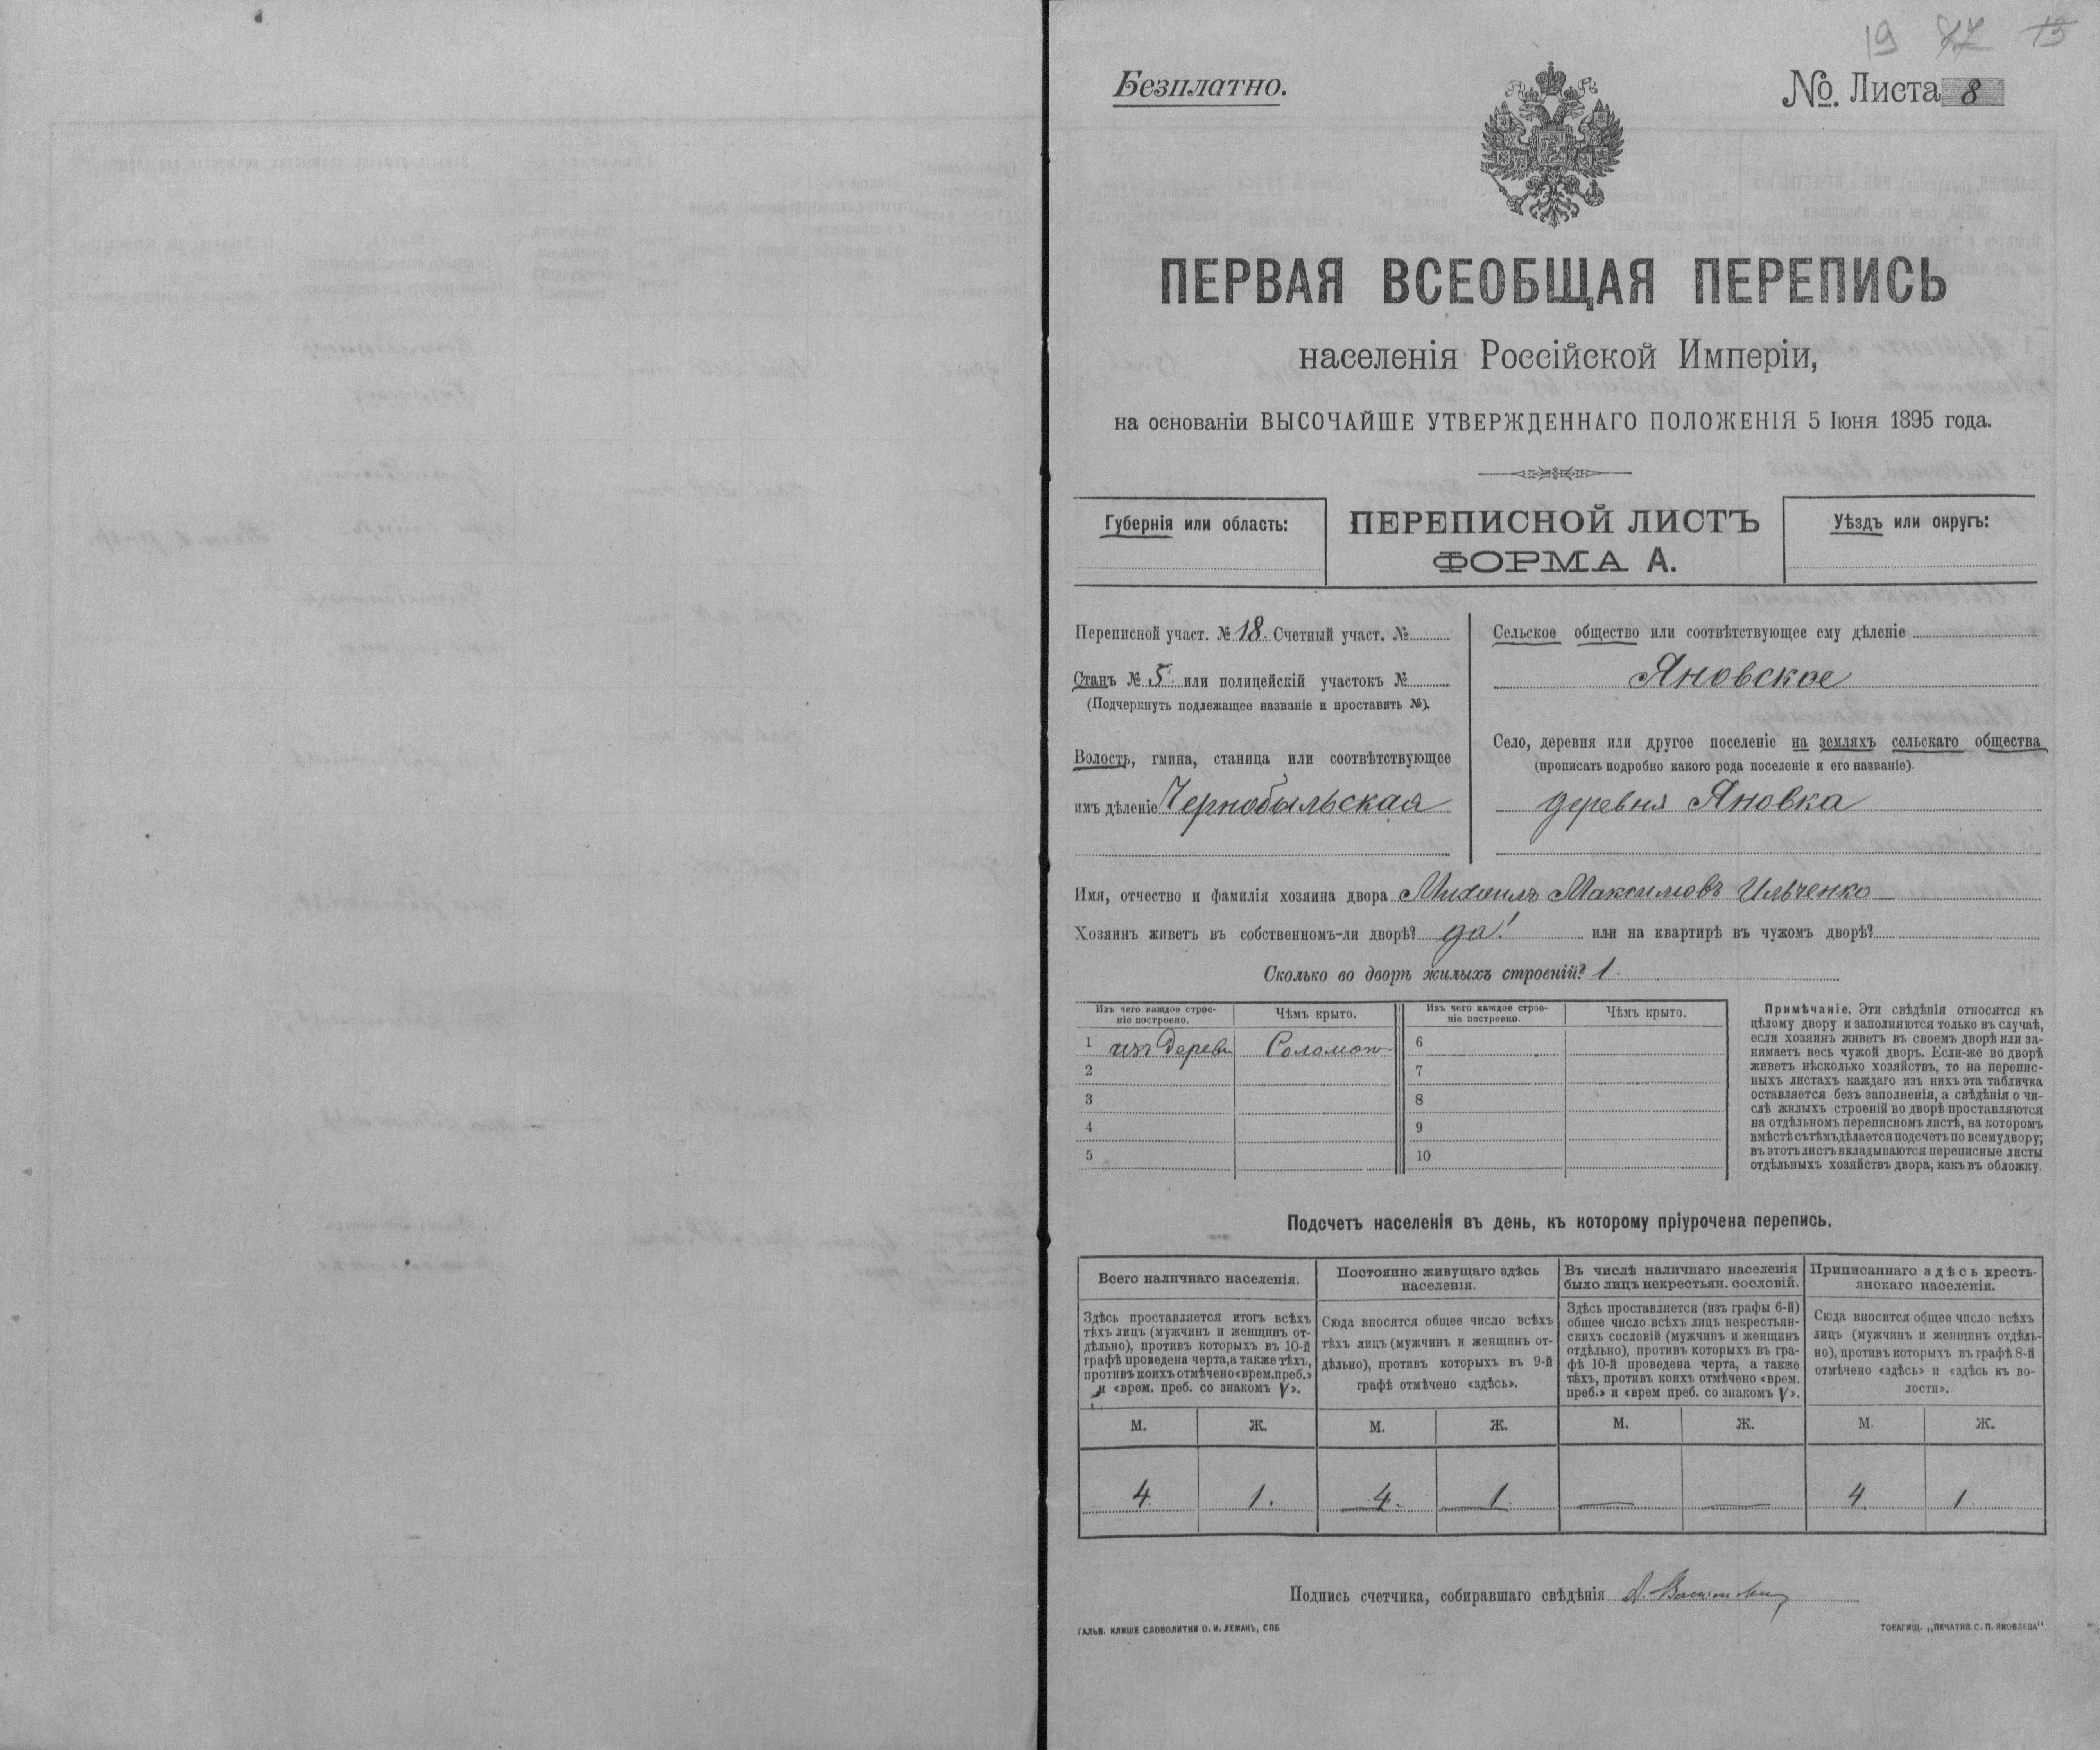 19 47 13
Безплатно.
№. Листа 8
ПЕРВАЯ ВСЕОБЩАЯ ПЕРЕПИСЬ
населенія Россійской Имперіи,
на основаніи ВЫСОЧАЙШЕ УТВЕРЖДЕННАГО ПОЛОЖЕНІЯ 5 Іюня 1895 года.
Губернія или область:
ПЕРЕПИСНОЙ ЛИСТЪ
ФОРМА А.
Уѣздъ или округъ:
Переписной участ. № 18. Счетный участ. №
Станъ № 5. или полицейскій участокъ №
(Подчеркнуть подлежащее названіе и проставить №).
Волость, гмина, станица или соотвѣтствующее
имъ дѣленіе Чернобыльская
Сельское общество или соотвѣтствующее ему дѣленіе
Яновское
Село, деревня или другое поселеніе на земляхъ сельскаго общества
(прописать подробно какого рода поселеніе и его названіе).
деревня Яновка
Имя, отчество и фамилія хозяина двора Михаилъ Максимовъ Ильченко
Хозяинъ живетъ въ собственномъ-ли дворѣ? да! или на квартирѣ въ чужомъ дворѣ?
Сколько во дворѣ жилыхъ строеній? 1.
Изъ чего каждое строе-
ніе построено.
Чѣмъ крыто.
Изъ чего каждое строе-
ніе построено.
Чѣмъ крыто.
1 изъ дерев Соломою
2
3
4
5
6
7
8
9
10
Примѣчаніе. Эти свѣдѣнія относятся къ
цѣлому двору и заполняются только въ случаѣ,
если хозяинъ живетъ въ своемъ дворѣ или за-
нимаетъ весь чужой дворъ. Если-же во дворѣ
живетъ нѣсколько хозяйствъ, то на перепис-
ныхъ листахъ каждаго изъ нихъ эта табличка
оставляется безъ заполненія, а свѣдѣнія о чи-
слѣ жилыхъ строеній во дворѣ проставляются
на отдѣльномъ переписномъ листѣ, на которомъ
вмѣстѣ съ тѣмъ дѣлается подсчетъ по всему двору;
въ этотъ листъ вкладываются переписные листы
отдѣльныхъ хозяйствъ двора, какъ въ обложку.
Подсчетъ населенія въ день, къ которому пріурочена перепись.
Всего наличнаго населенія.
Здѣсь проставляется итогъ всѣхъ
тѣхъ лицъ (мужчинъ и женщинъ от-
дѣльно), противъ которыхъ въ 10-й
графѣ проведена черта, а также тѣхъ,
противъ коихъ отмѣчено «врем. преб.»
и «врем. преб. со знакомъ V».
Постоянно живущаго здѣсь
населенія.
Сюда вносится общее число всѣхъ
тѣхъ лицъ (мужчинъ и женщинъ от-
дѣльно), противъ которыхъ въ 9-й
графѣ отмѣчено «здѣсь».
Въ числѣ наличнаго населенія
было лицъ некрестьян. сословій.
Здѣсь проставляется (изъ графы 6-й)
общее число всѣхъ лицъ некрестьян-
скихъ сословій (мужчинъ и женщинъ
отдѣльно), противъ которыхъ въ гра-
фѣ 10-й проведена черта, а также
тѣхъ, противъ коихъ отмѣчено «врем.
преб.» и «врем преб. со знакомъ V».
Приписаннаго здѣсь кресть-
янскаго населенія.
Сюда вносится общее число всѣхъ
лицъ (мужчинъ и женщинъ отдѣль-
но), противъ которыхъ въ графѣ 8-й
отмѣчено «здѣсь» и «здѣсь къ во-
лости».
М. Ж. М. Ж. М. Ж. М. Ж.
4. 1. 4. 1. — — 4. 1.
Подпись счетчика, собиравшаго свѣдѣнія
ГАЛЬВ. КЛИШЕ СЛОВОЛИТНИ О. И. ЛЕМАНЪ, СПБ
ТОВАРИЩ. „ПЕЧАТНЯ С. П. ЯКОВЛЕВА“.